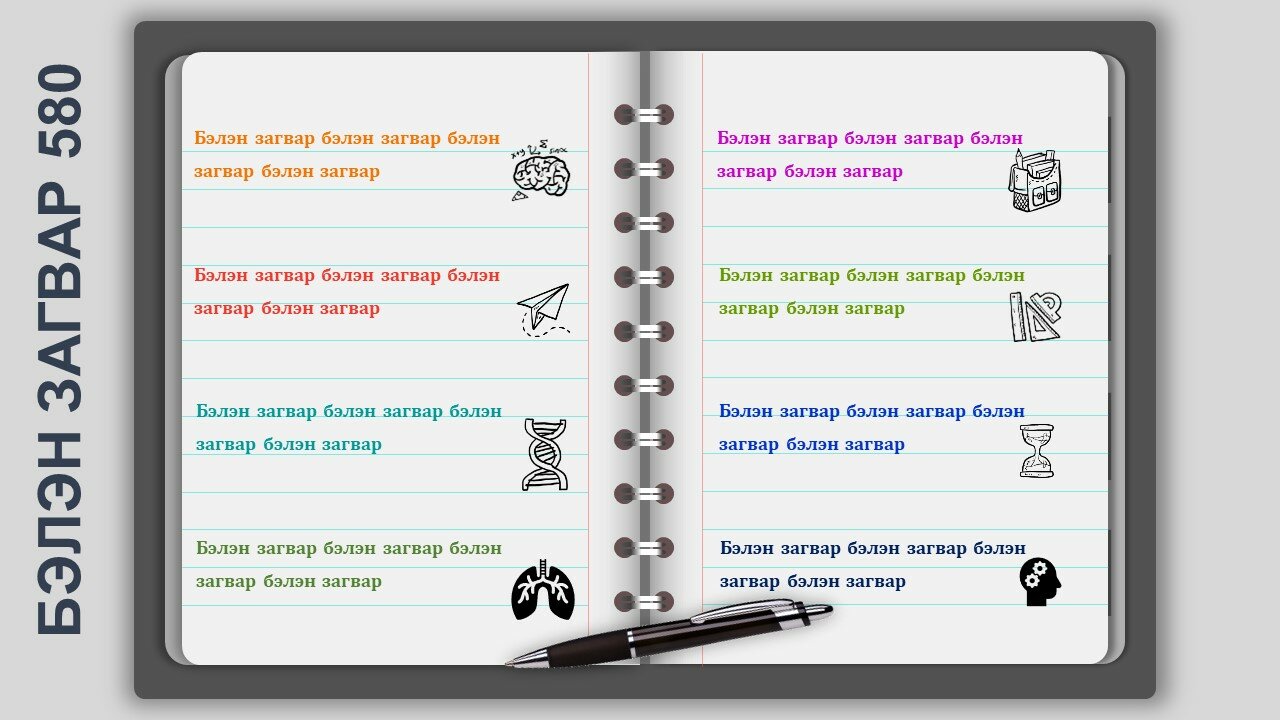 БЭЛЭН ЗАГВАР 580
Бэлэн загвар бэлэн загвар бэлэн
загвар бэлэн загвар
Бэлэн загвар бэлэн загвар бэлэн
загвар бэлэн загвар
Бэлэн загвар бэлэн загвар бэлэн
загвар бэлэн загвар
Бэлэн загвар бэлэн загвар бэлэн
загвар бэлэн загвар
Бэлэн загвар бэлэн загвар бэлэн
загвар бэлэн загвар
Бэлэн загвар бэлэн загвар бэлэн
загвар бэлэн загвар
Бэлэн загвар бэлэн загвар бэлэн
загвар бэлэн загвар
Бэлэн загвар бэлэн загвар бэлэн
загвар бэлэн загвар